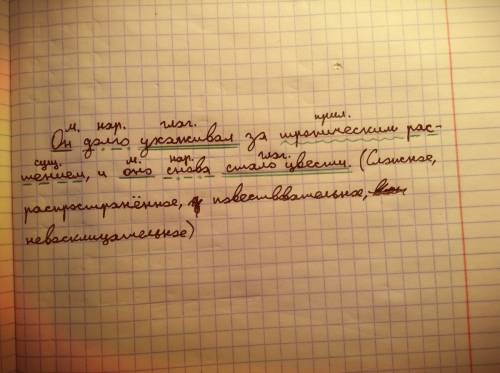 м. нар. глаг. прил.
Он долго ухаживал за тропическим рас-
сущ. м. нар. глаг.
тением, и оно снова стало цвести. (Сложное,
распространённое, повествовательное,
невосклицательное)